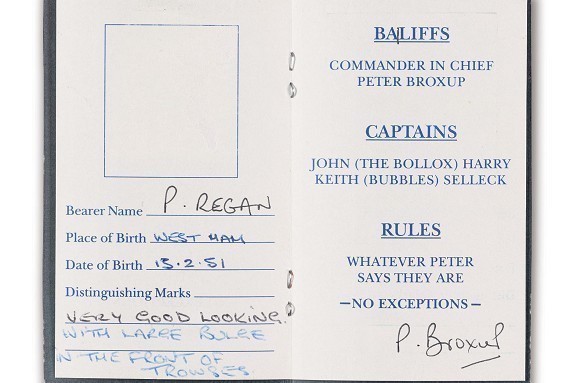 Bearer Name P. REGAN
Place of Birth WEST HAM
Date of Birth 15.2.51
Distinguishing Marks
VERY GOOD LOOKING.
WITH LARGE BULGE
IN THE FRONT OF
TROWSES.
BALIFFS
COMMANDER IN CHIEF
PETER BROXUP
CAPTAINS
JOHN (THE BOLLOX) HARRY
KEITH (BUBBLES) SELLECK
RULES
WHATEVER PETER
SAYS THEY ARE
—NO EXCEPTIONS—
P. Broxup